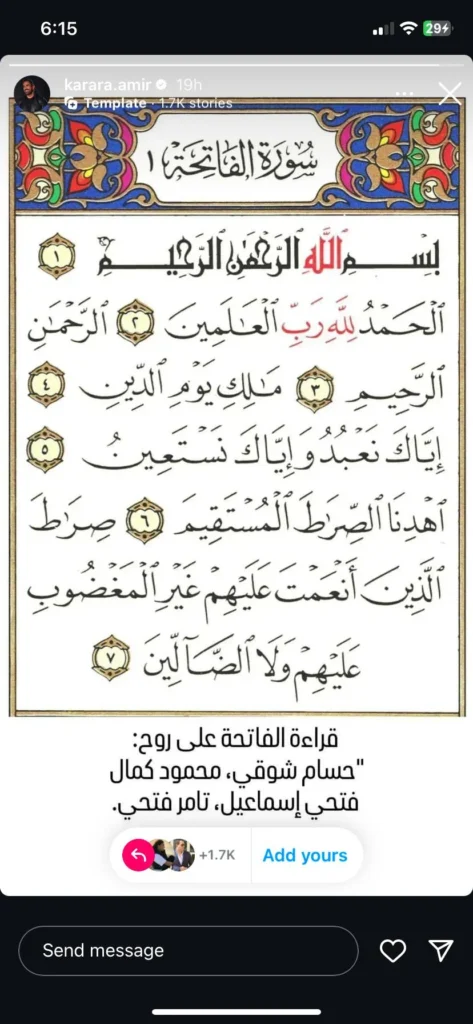 6:15
29
karara.amir 19h
Template · 1.7K stories
سُورَةُ الفَاتِحَة ١
بِسْمِ ٱللَّهِ ٱلرَّحْمَٰنِ ٱلرَّحِيمِ ١
ٱلْحَمْدُ لِلَّهِ رَبِّ ٱلْعَٰلَمِينَ ٢ ٱلرَّحْمَٰنِ
ٱلرَّحِيمِ ٣ مَٰلِكِ يَوْمِ ٱلدِّينِ ٤
إِيَّاكَ نَعْبُدُ وَإِيَّاكَ نَسْتَعِينُ ٥
ٱهْدِنَا ٱلصِّرَٰطَ ٱلْمُسْتَقِيمَ ٦ صِرَٰطَ
ٱلَّذِينَ أَنْعَمْتَ عَلَيْهِمْ غَيْرِ ٱلْمَغْضُوبِ
عَلَيْهِمْ وَلَا ٱلضَّآلِّينَ ٧
قراءة الفاتحة على روح:
"حسام شوقي، محمود كمال
فتحي إسماعيل، تامر فتحي.
+1.7K Add yours
Send message